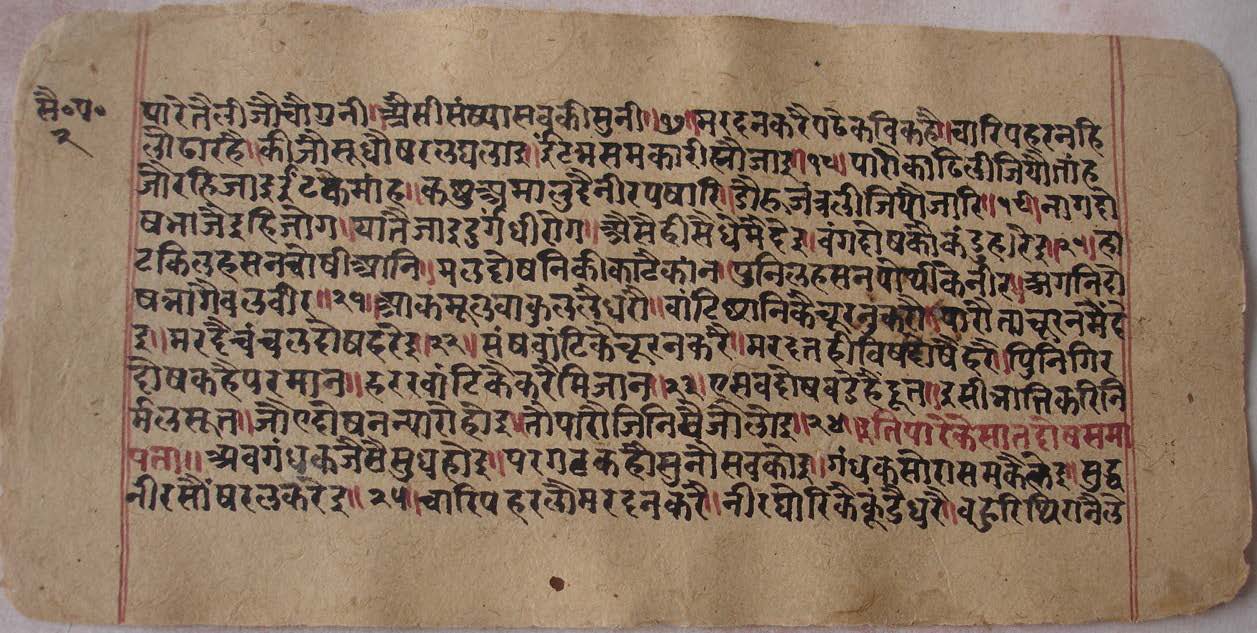 सै॰प॰
२
पारेतैलीजौचौगुनी॥असीसंष्यासबकीसुनी॥१७॥मरदनकरैपढैकविकहै॥चारिपहरनहि
लौढारहै॥कीजौसुधौषरलघलाइ॥ईटमसमकारीहोजाइ॥१८॥पारोकाढिलीजियौतांह
जौरहिजाइईटकैमांह॥कपुअमालुदैनीरपषारि॥डौरुजंत्रलीजियौजारि॥१९॥नागदो
षभाजैइहिजोग॥यातैजाइदुर्गंधीरोग॥असैदीसैधेमैहेइ॥वंगदोषकौकंडुहारेइ॥२०॥हा
टकिलहसनचौषीआनि॥मलदोषनिकीकाटैकांन॥पुनिलहसनपोथीकैनीर॥अगनिदो
षभागैबलबीर॥२१॥आकमूलवाकुललैधरौ॥वाटिछानिकैचूरनुकरौ॥पारौताचूरनमैंदे
इ॥मरदैचंचलदोषहरेइ॥२२॥संषवांटिकैचूरनकरै॥मरदतहीविषदोषैहरै॥पुनिगिर
दोषकहैपरमान॥हररवांटिकैकरैमिजान॥२३॥एसबदोषबडेहैदूत॥इसीभातिकरिनि
र्मलसूत॥जौएदोषननन्यारौहोइ॥तौपारौजिनिषैजौलोइ॥२४॥इतिपारेकेसातदोषसमा
पता॥॥अबगंधकजैसैसुधहोइ॥परगटकहौसुनौसबकोइ॥गंधकसोरासमकैलेइ॥सुद्ध
नीरसौंषरलकरेइ॥२५॥चारिपहरलौमरदनकरै॥नीरघोरिकैकूंडैधरै॥बहुरिथिरानैले